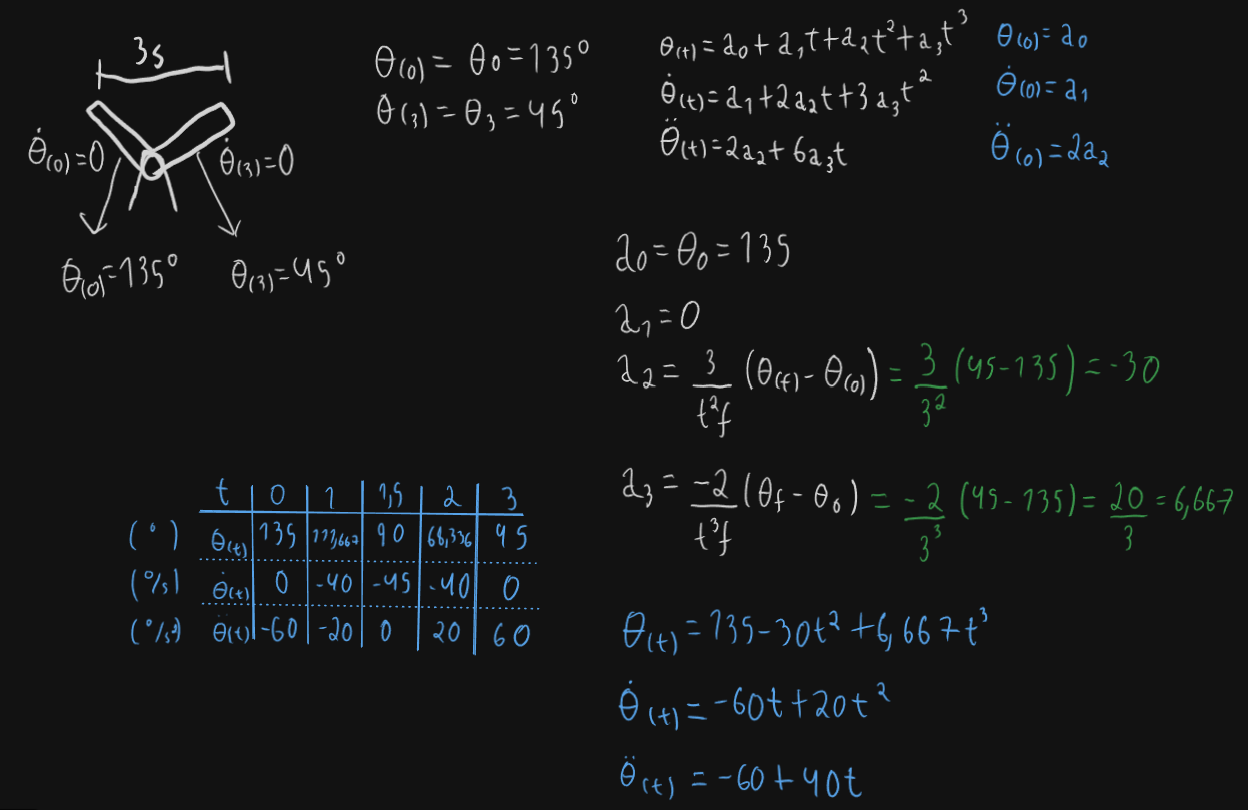 3s
θ̇(0)=0
θ̇(3)=0
θ(0)=135°
θ(3)=45°
θ(0) = θ0 = 135°
θ(3) = θ3 = 45°
θ(t) = a0 + a1t + a2t² + a3t³
θ̇(t) = a1 + 2a2t + 3a3t²
θ̈(t) = 2a2 + 6a3t
θ(0) = a0
θ̇(0) = a1
θ̈(0) = 2a2
a0 = θ0 = 135
a1 = 0
a2 = 3/t²f (θ(f) - θ(0)) = 3/3² (45-135) = -30
a3 = -2/t³f (θf - θ0) = -2/3³ (45-135) = 20/3 = 6,667
t | 0 | 1 | 1,5 | 2 | 3
(°) θ(t) | 135 | 111,667 | 90 | 68,336 | 45
(°/s) θ̇(t) | 0 | -40 | -45 | -40 | 0
(°/s²) θ̈(t) | -60 | -20 | 0 | 20 | 60
θ(t) = 135 - 30t² + 6,667t³
θ̇(t) = -60t + 20t²
θ̈(t) = -60 + 40t